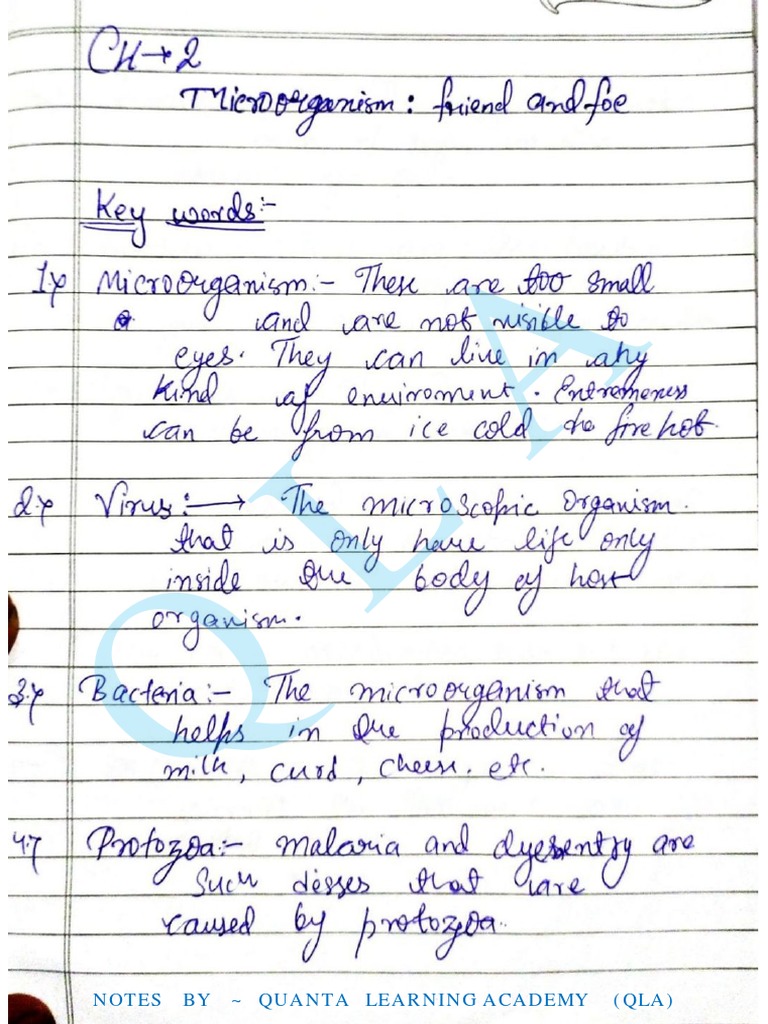 CH→2
Microorganism: friend and foe
Key words:-
1.> Microorganism:- These are too small
and are not visible to
eyes. They can live in any
kind of enviroment. Entremeness
can be from ice cold to fire hot.
2.> Virus:⟶ The microscopic organism.
that is only have life only
inside the body of host
organism.
3.> Bacteria:- The microorganism that
helps in the production of
milk, curd, cheese. etc.
4.> Protozoa:- Malaria and dyesentry are
Such desses that are
caused by protozoa.
QLA
NOTES BY ~ QUANTA LEARNING ACADEMY (QLA)